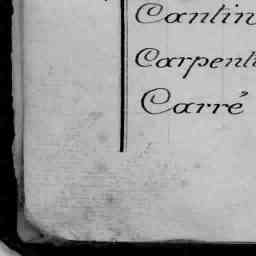 Cantin
Carpenti
Carré